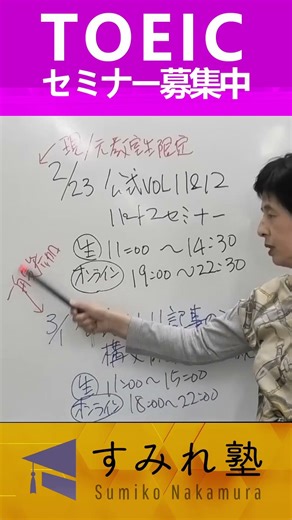 TOEIC
セミナー募集中
現/元教室生限定
2/23 公式VOL11&12
セミナー
生 11:00~14:30
オンライン 19:00~22:30
3/1
記事の
構文
生 11:00~15:00
オンライン 18:00~22:00
すみれ塾
Sumiko Nakamura